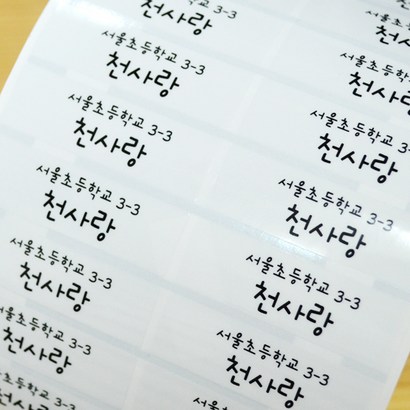 천사랑
서울초등학교 3-3
천사랑
서울초등학교 3-3
천사랑
서울초등학교 3-3
천사랑
서울초등학교 3-3
천사랑
서울초등학교 3-3
천사랑
초등학교 3-3
서울초등학
천사랑
서울초등학교
천사랑
서울초등학교 3-
천사랑
서울초등학교 3-3
천사랑
서울초등학교 3-3
천사랑
서울초등학교 3-3
천사랑